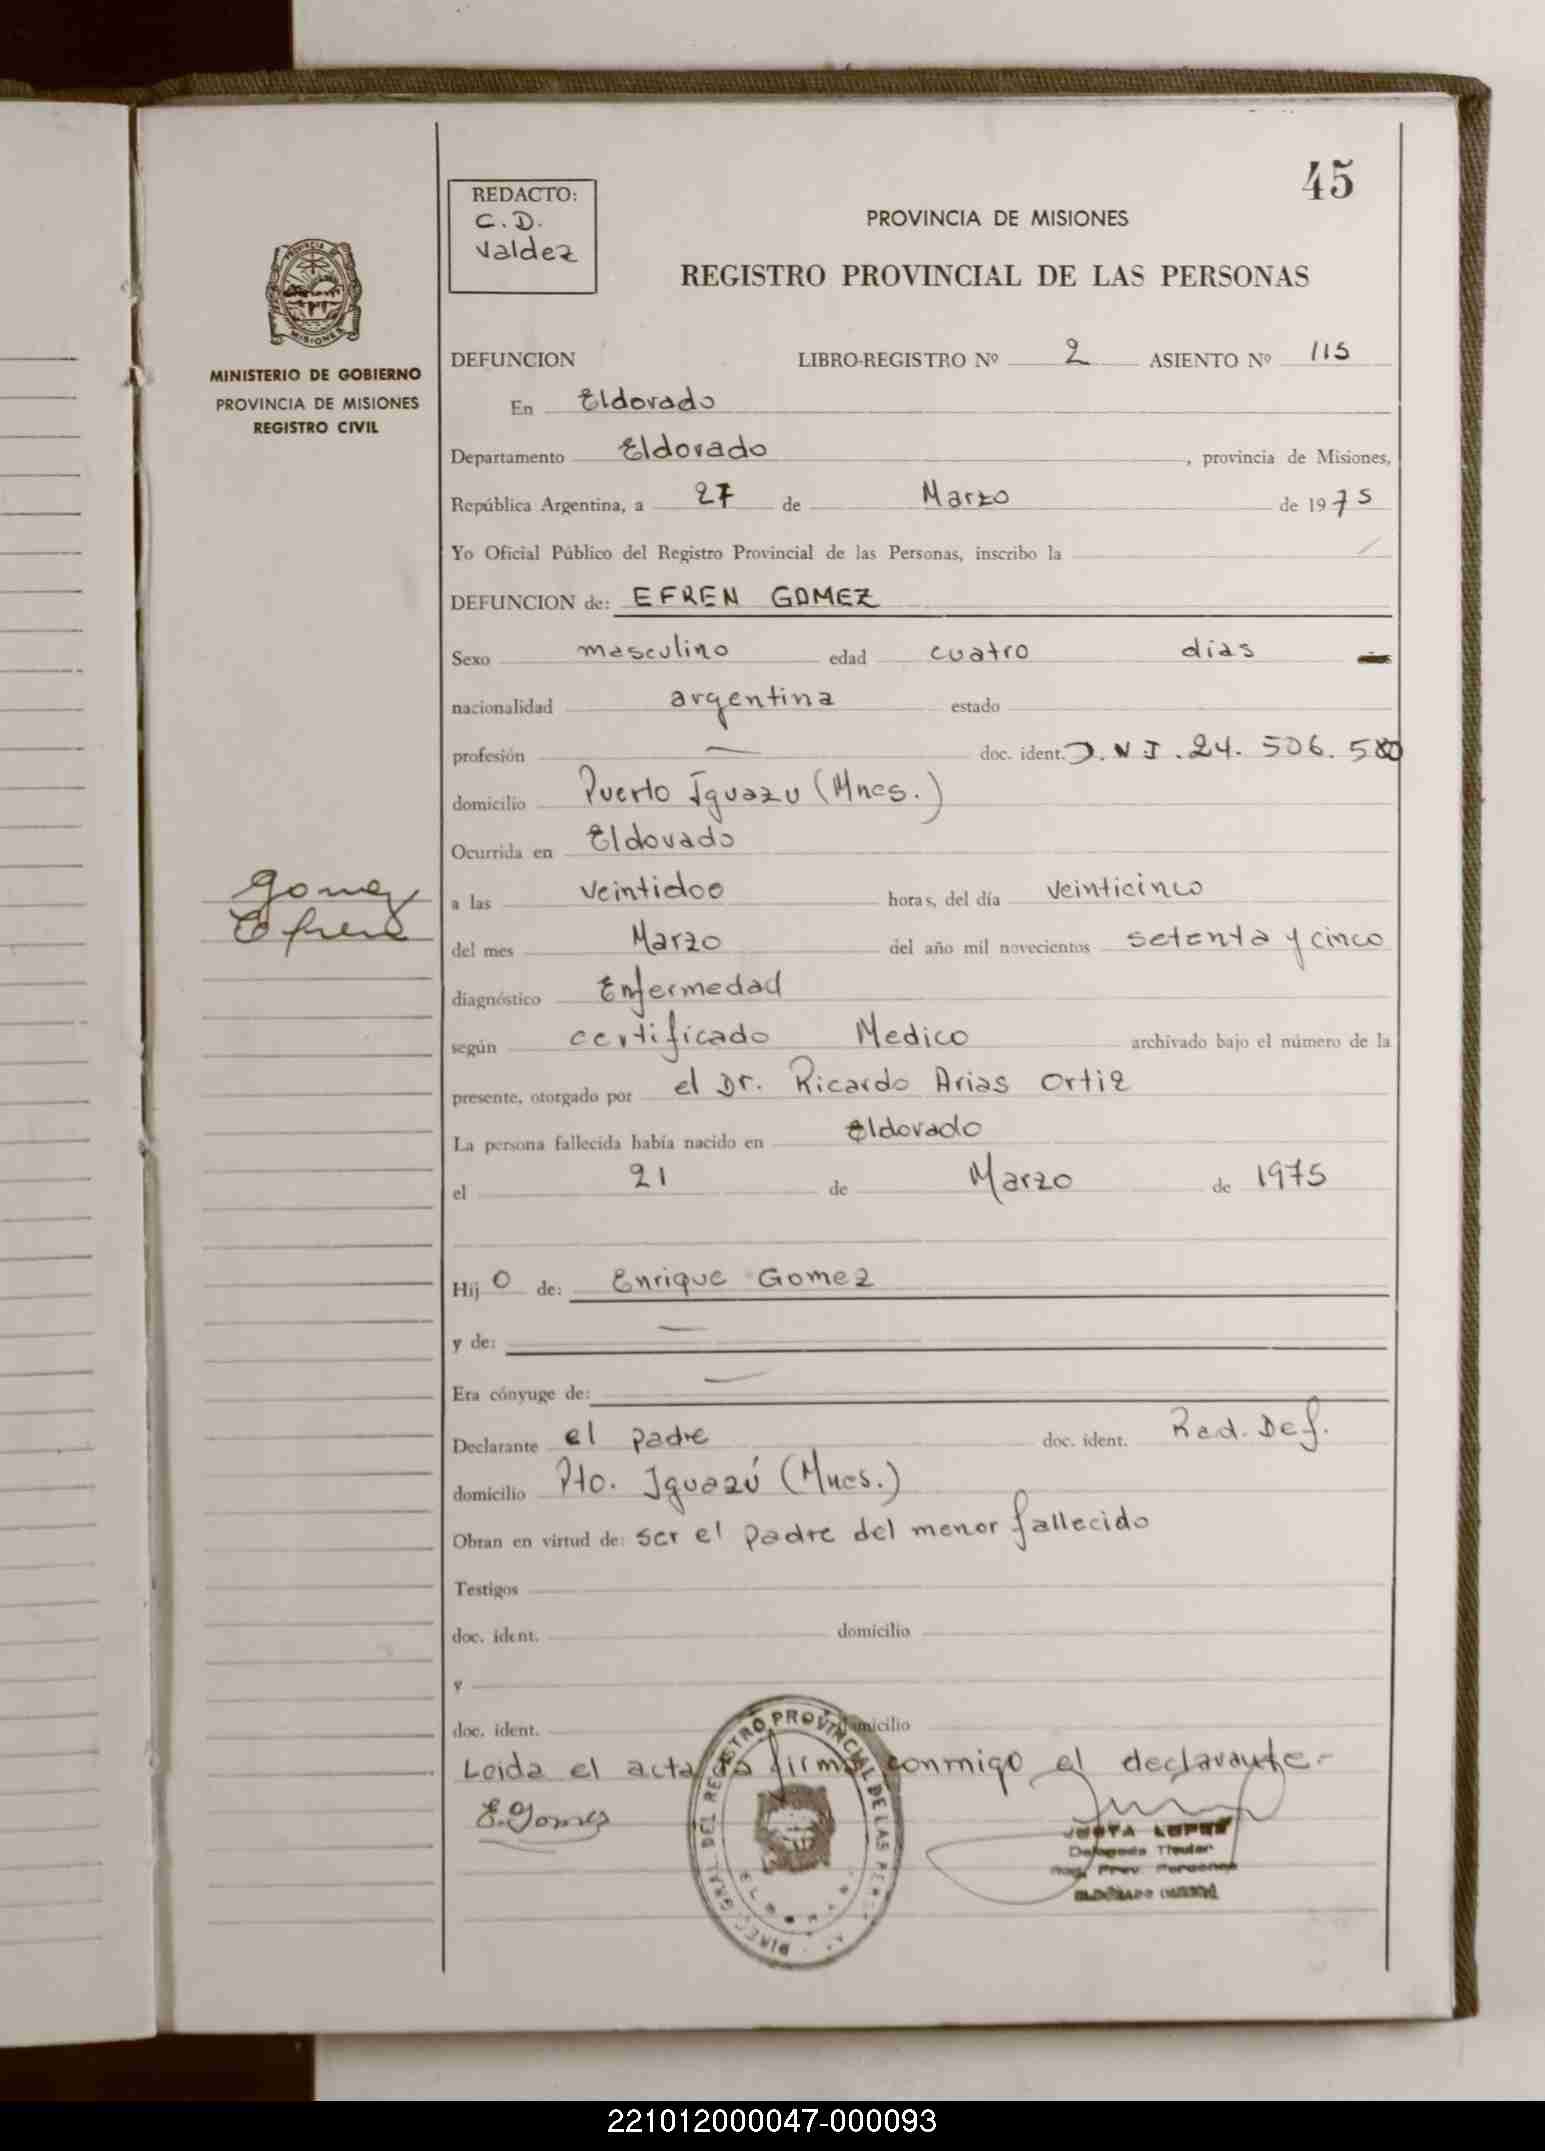 45
REDACTO:
C.D.
Valdez
PROVINCIA DE MISIONES
REGISTRO PROVINCIAL DE LAS PERSONAS
PROVINCIA DE MISIONES
MINISTERIO DE GOBIERNO
PROVINCIA DE MISIONES
REGISTRO CIVIL
DEFUNCION LIBRO-REGISTRO Nº 2 ASIENTO Nº 115
En Eldorado
Departamento Eldorado, provincia de Misiones,
República Argentina, a 27 de Marzo de 1975
Yo Oficial Público del Registro Provincial de las Personas, inscribo la
DEFUNCION de: EFREN GOMEZ
Sexo masculino edad cuatro dias
nacionalidad argentina estado
profesión — doc. ident. D.N.I. 24.506.580
domicilio Puerto Iguazu (Mnes.)
Ocurrida en Eldorado
Gomez
Efren
a las veintidos horas, del día veinticinco
del mes Marzo del año mil novecientos setenta y cinco
diagnóstico Enfermedad
según certificado Medico archivado bajo el número de la
presente, otorgado por el Dr. Ricardo Arias Ortiz
La persona fallecida había nacido en Eldorado
el 21 de Marzo de 1975
Hij o de: Enrique Gomez
y de: —
Era cónyuge de: —
Declarante el padre doc. ident. Red. Def.
domicilio Pto. Iguazú (Mnes.)
Obran en virtud de: ser el padre del menor fallecido
Testigos
doc. ident. domicilio
y
doc. ident. domicilio
Leida el acta la firma conmigo el declarante.-
E. Gomez
DIREC. GRAL. DEL REGISTRO PROVINCIAL DE LAS PERS.
LOPEZ
Delegada Titular
221012000047-000093